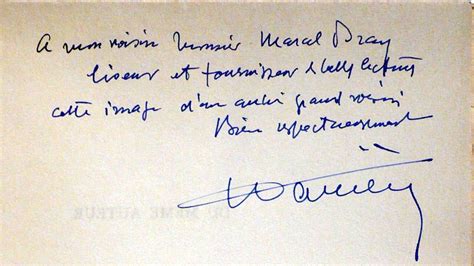 A mon voisin Monsieur Marcel Bray
liseur et fournisseur de belles lectures
cette image d'un autre grand voisin
Bien respectueusement
DU MÊME AUTEUR